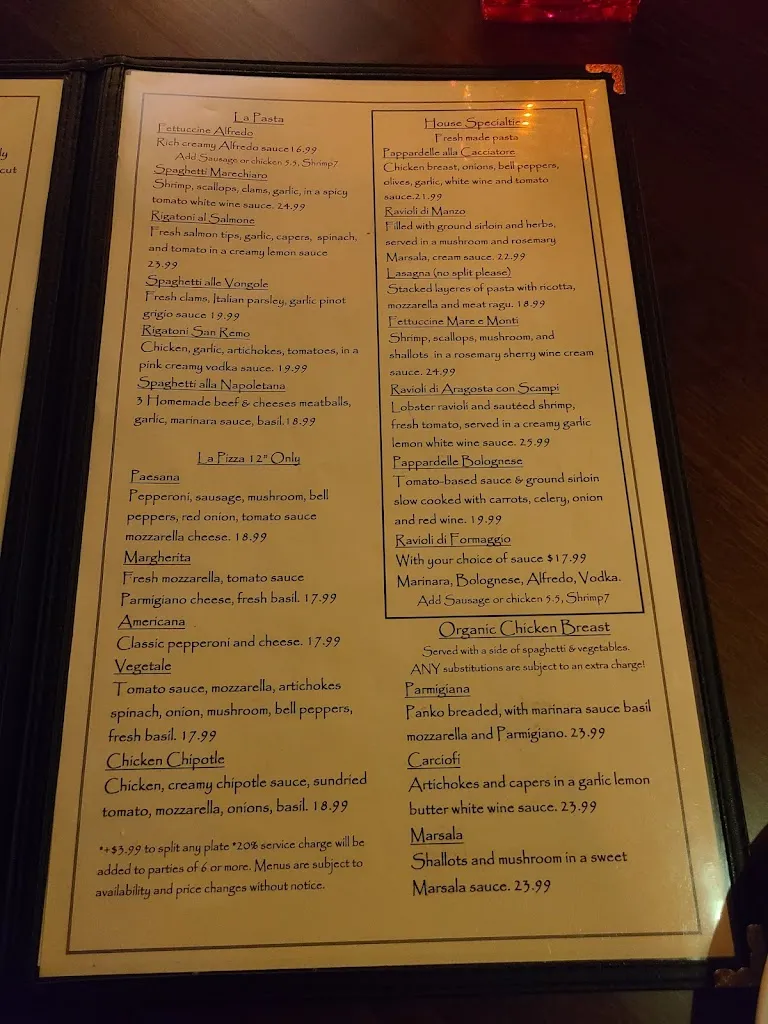 ly
cut
La Pasta
Fettuccine Alfredo
Rich creamy Alfredo sauce16.99
Add Sausage or chicken 5.5, Shrimp7
Spaghetti Marechiaro
Shrimp, scallops, clams, garlic, in a spicy
tomato white wine sauce. 24.99
Rigatoni al Salmone
Fresh salmon tips, garlic, capers, spinach,
and tomato in a creamy lemon sauce
23.99
Spaghetti alle Vongole
Fresh clams, Italian parsley, garlic pinot
grigio sauce 19.99
Rigatoni San Remo
Chicken, garlic, artichokes, tomatoes, in a
pink creamy vodka sauce. 19.99
Spaghetti alla Napoletana
3 Homemade beef & cheeses meatballs,
garlic, marinara sauce, basil.18.99
La Pizza 12" Only
Paesana
Pepperoni, sausage, mushroom, bell
peppers, red onion, tomato sauce
mozzarella cheese. 18.99
Margherita
Fresh mozzarella, tomato sauce
Parmigiano cheese, fresh basil. 17.99
Americana
Classic pepperoni and cheese. 17.99
Vegetale
Tomato sauce, mozzarella, artichokes
spinach, onion, mushroom, bell peppers,
fresh basil. 17.99
Chicken Chipotle
Chicken, creamy chipotle sauce, sundried
tomato, mozzarella, onions, basil. 18.99
*+$3.99 to split any plate *20% service charge will be
added to parties of 6 or more. Menus are subject to
availability and price changes without notice.
House Specialtie
Fresh made pasta
Pappardelle alla Cacciatore
Chicken breast, onions, bell peppers,
olives, garlic, white wine and tomato
sauce.21.99
Ravioli di Manzo
Filled with ground sirloin and herbs,
served in a mushroom and rosemary
Marsala, cream sauce. 22.99
Lasagna (no split please)
Stacked layeres of pasta with ricotta,
mozzarella and meat ragu. 18.99
Fettuccine Mare e Monti
Shrimp, scallops, mushroom, and
shallots in a rosemary sherry wine cream
sauce. 24.99
Ravioli di Aragosta con Scampi
Lobster ravioli and sautéed shrimp,
fresh tomato, served in a creamy garlic
lemon white wine sauce. 25.99
Pappardelle Bolognese
Tomato-based sauce & ground sirloin
slow cooked with carrots, celery, onion
and red wine. 19.99
Ravioli di Formaggio
With your choice of sauce $17.99
Marinara, Bolognese, Alfredo, Vodka.
Add Sausage or chicken 5.5, Shrimp7
Organic Chicken Breast
Served with a side of spaghetti & vegetables.
ANY substitutions are subject to an extra charge!
Parmigiana
Panko breaded, with marinara sauce basil
mozzarella and Parmigiano. 23.99
Carciofi
Artichokes and capers in a garlic lemon
butter white wine sauce. 23.99
Marsala
Shallots and mushroom in a sweet
Marsala sauce. 23.99